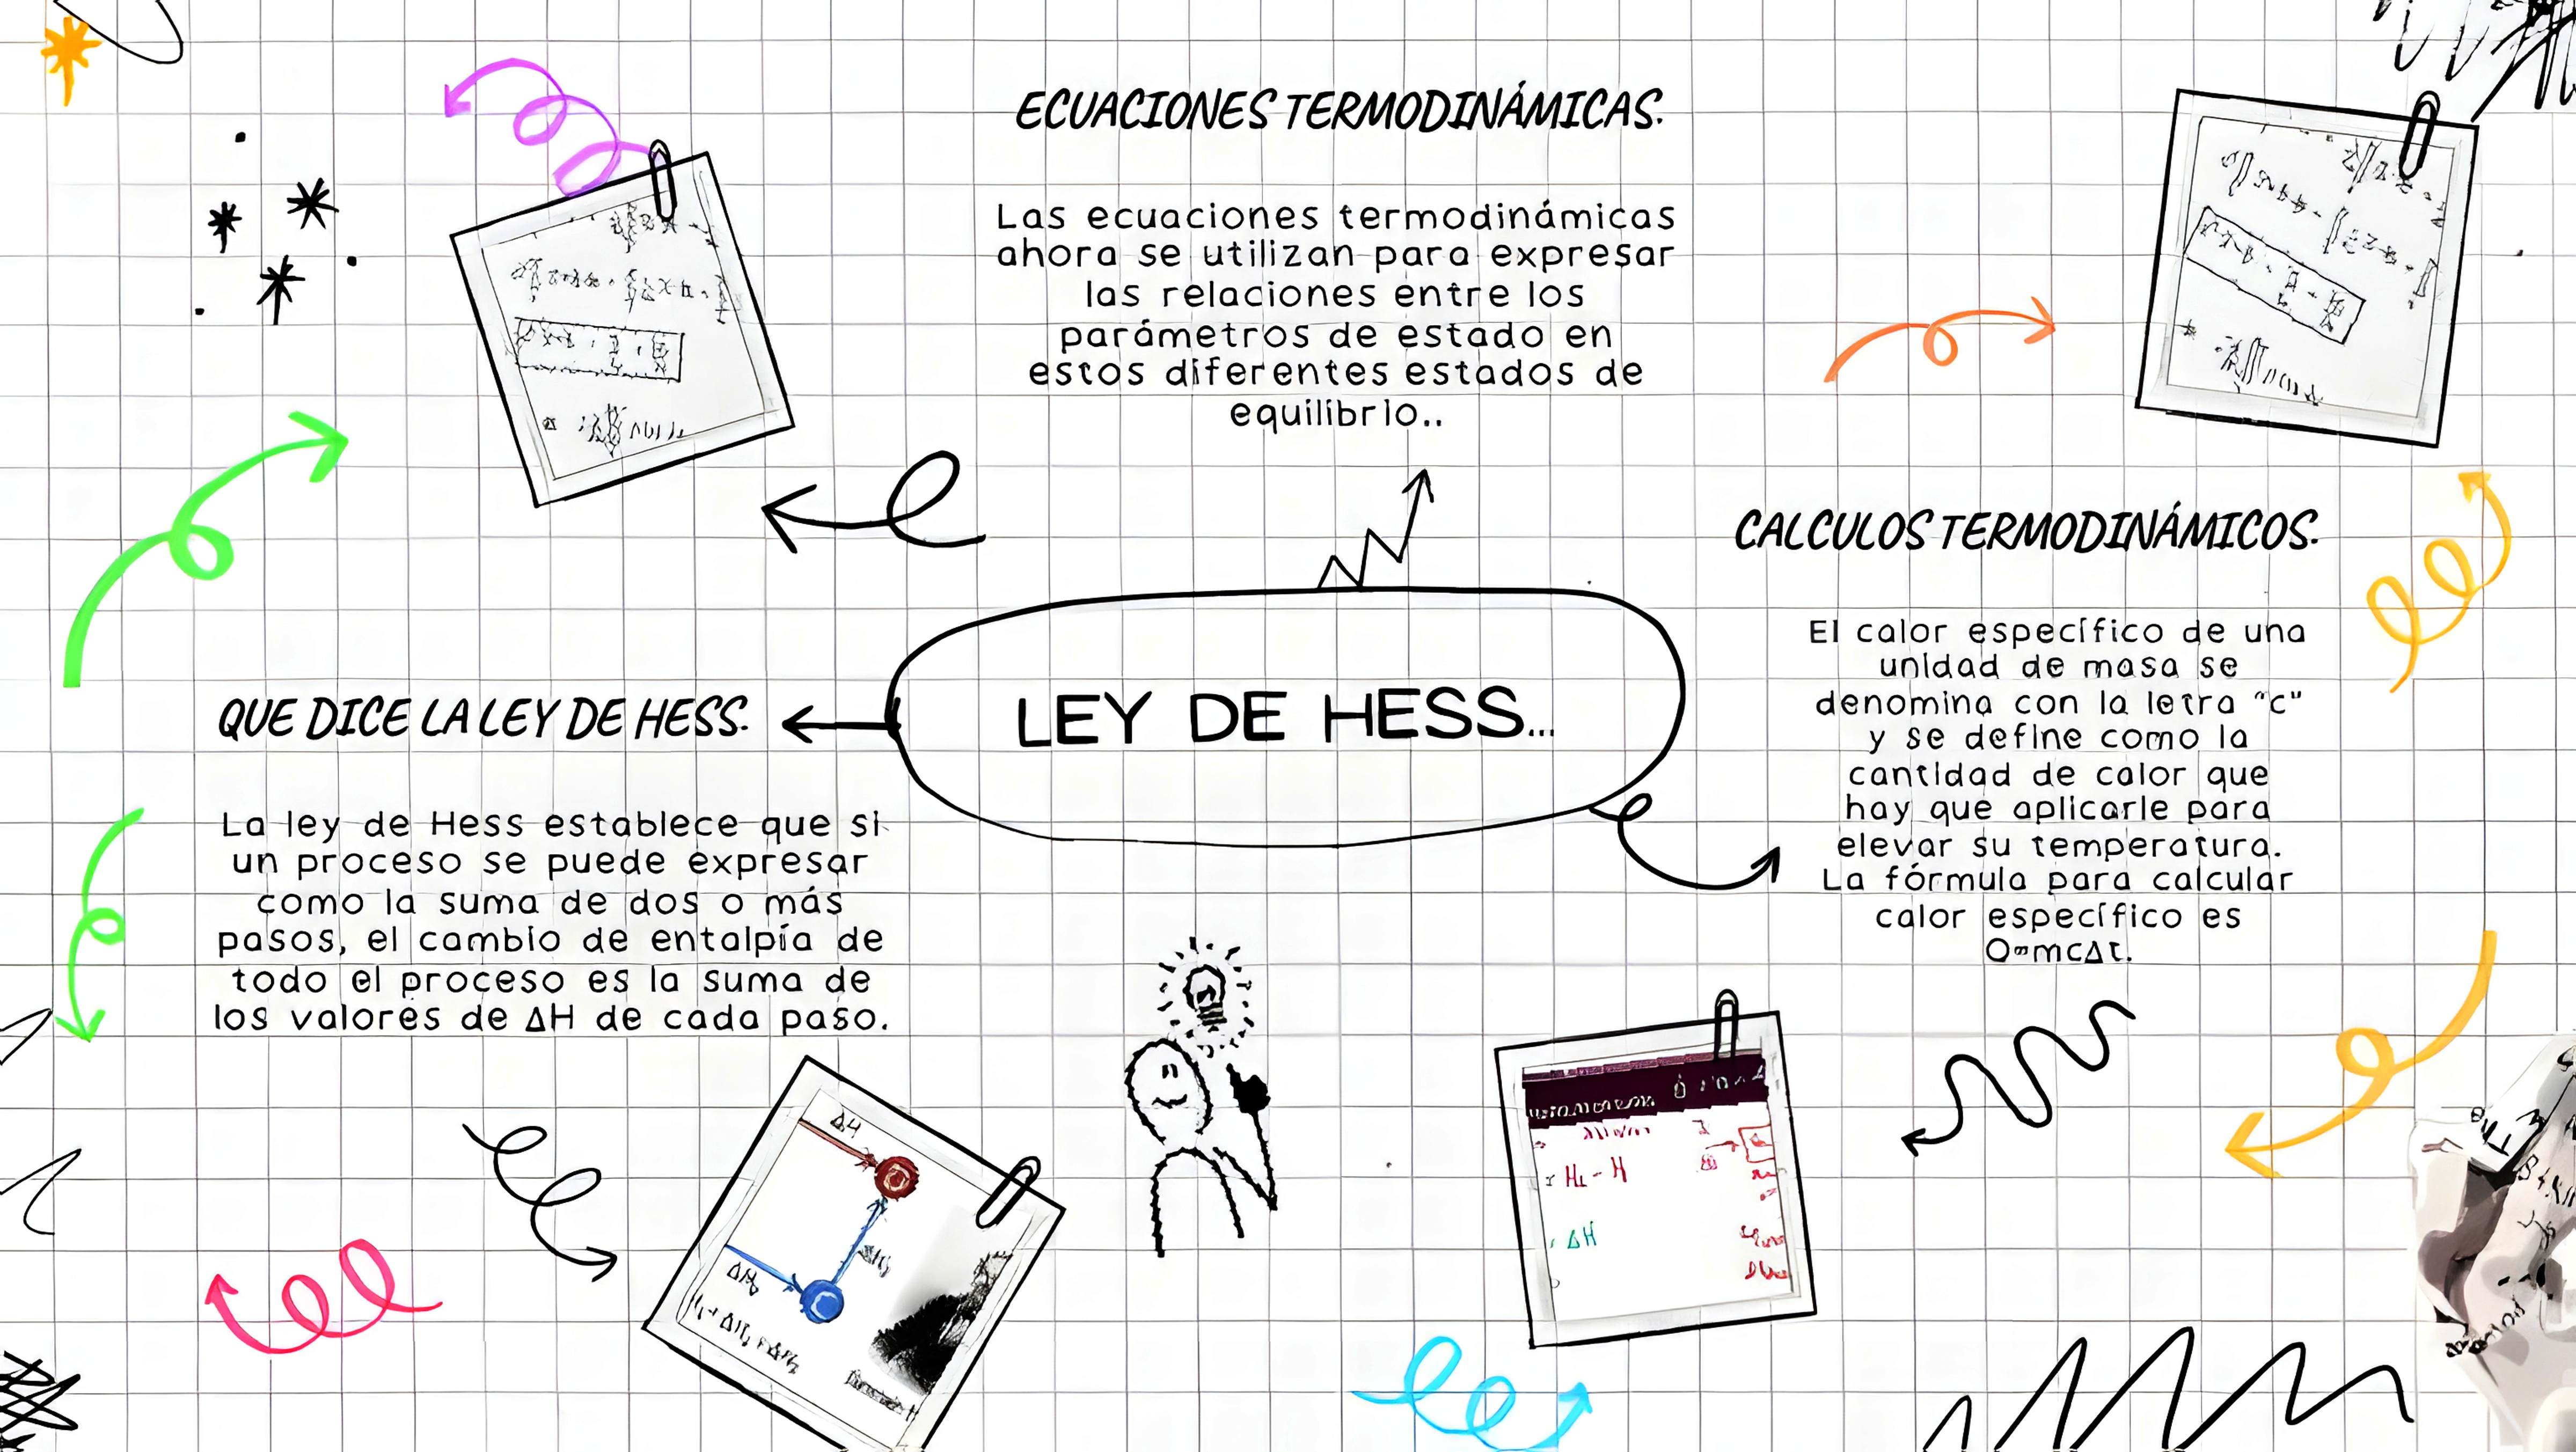 ECUACIONES TERMODINÁMICAS.
Las ecuaciones termodinámicas
ahora se utilizan para expresar
las relaciones entre los
parámetros de estado en
estos diferentes estados de
equilibrio..
CALCULOS TERMODINÁMICOS.
El calor específico de una
unidad de masa se
denomina con la letra "c"
y se define como la
cantidad de calor que
hay que aplicarle para
elevar su temperatura.
La fórmula para calcular
calor específico es
Q=mcΔt.
LEY DE HESS...
QUE DICE LA LEY DE HESS.
La ley de Hess establece que si
un proceso se puede expresar
como la suma de dos o más
pasos, el cambio de entalpía de
todo el proceso es la suma de
los valores de ΔH de cada paso.
ΔH
ΔH